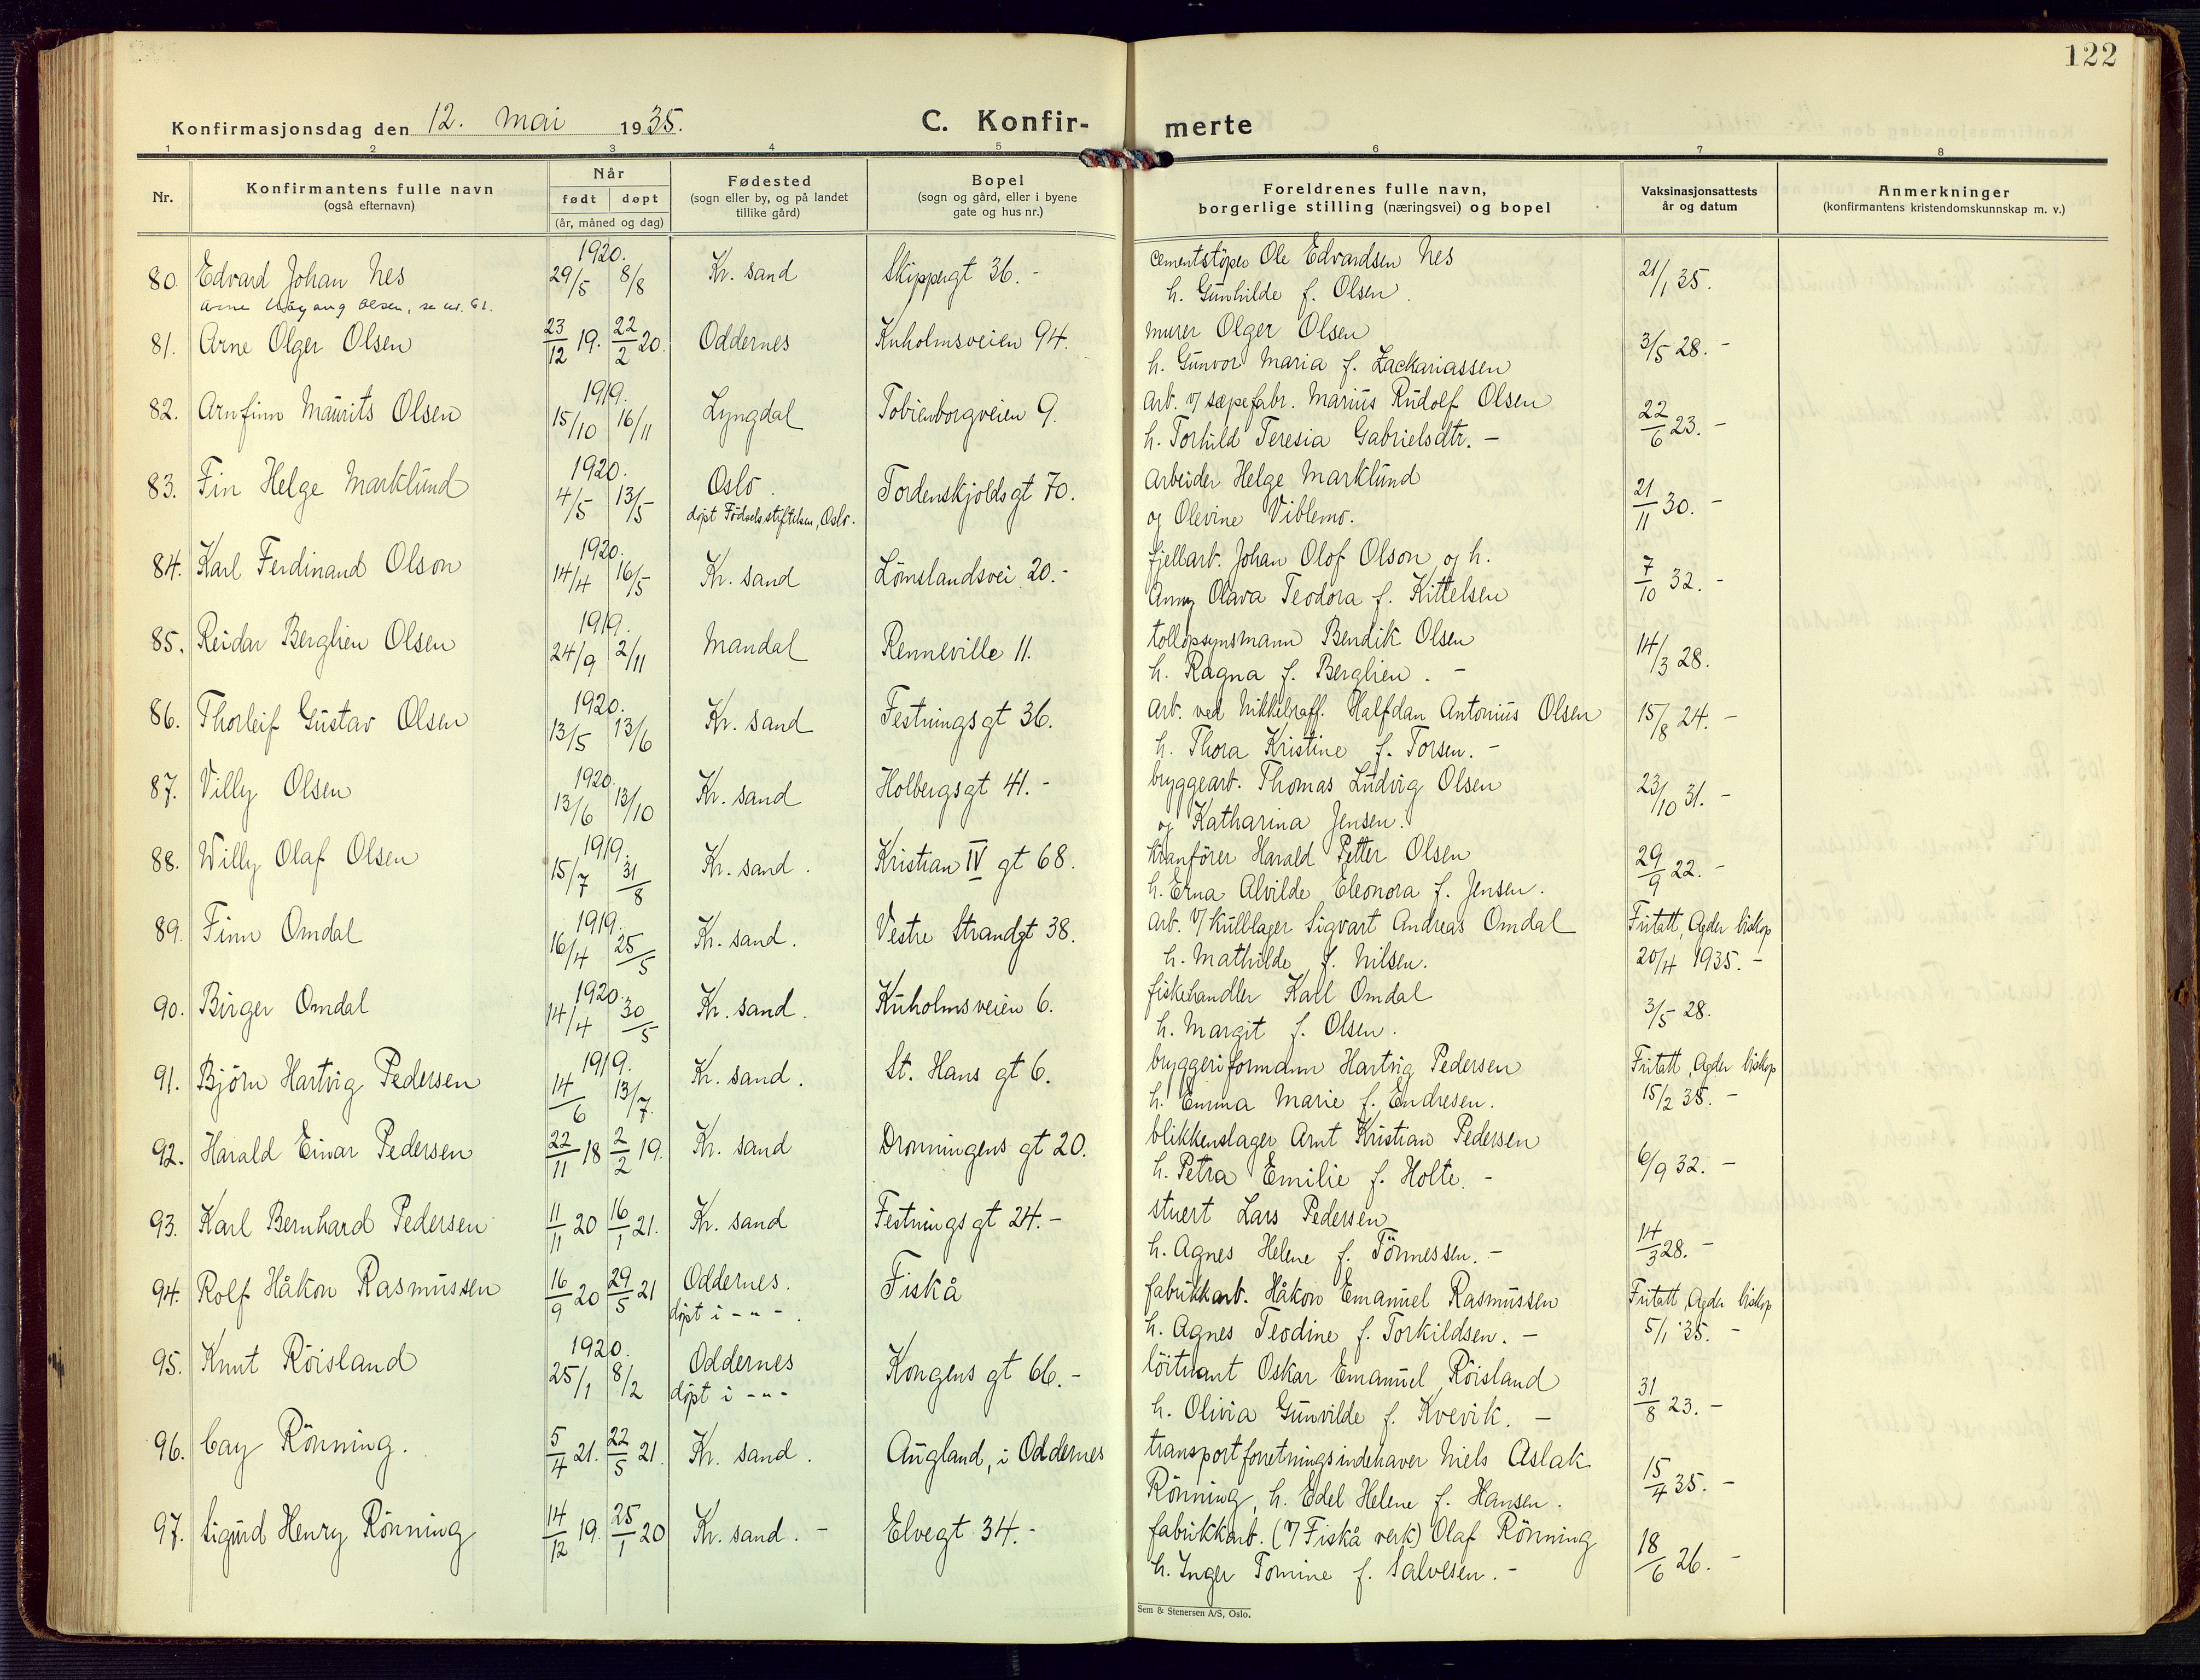 122
Konfirmasjonsdag den 12. Mai 1935.
C. Konfirmerte
1 2 3 4 5 6 7 8
Nr.
Konfirmantens fulle navn
(også efternavn)
Når
født døpt
(år, måned og dag)
Fødested
(sogn eller by, og på landet
tillike gård)
Bopel
(sogn og gård, eller i byene
gate og hus nr.)
Foreldrenes fulle navn,
borgerlige stilling (næringsvei) og bopel
Vaksinasjonsattests
år og datum
Anmerkninger
(konfirmantens kristendomskunnskap m. v.)
80. Edvard Johan Nes 1920. 29/5 8/8 Kr. sand Skippergt 36. - cementstöper Ole Edvardsen Nes
h. Gunhilde f. Olsen. 21/1 35.
Arne Olsen, se nr.
81. Arne Olger Olsen 23/12 19. 22/2 20. Oddernes Kuholmsveien 94. murer Olger Olsen
h. Gunvor Maria f. Zackariassen 3/5 28. -
82. Arnfinn Maurits Olsen 1919. 15/10 16/11 Lyngdal Tobienborgveien 9. Arb. v/ sæpefabr. Marius Rudolf Olsen
h. Torhild Teresia Gabrielsdtr. - 22/6 23. -
83. Fin Helge Marklund 1920. 4/5 13/5 Oslo. Tordenskjoldsgt 70. Arbeider Helge Marklund
døpt Födselsstiftelsen, Oslo. og Olevine Viblemo. 21/11 30. -
84. Karl Ferdinand Olson 1920. 14/4 16/5 Kr. sand Lömslandsvei 20. - fjellarb. Johan Olof Olson og h.
Anny Olava Teodora f. Kittelsen 7/10 32. -
85. Reidar Berglien Olsen 1919. 24/9 2/11 Mandal Renneville 11. tollopsynsmann Bendik Olsen
h. Ragna f. Berglien. - 14/3 28.
86. Thorleif Gustav Olsen 1920. 13/5 13/6 Kr. sand Festningsgt 36. Arb. ved Nikkelraff. Halfdan Antonius Olsen
h. Thora Kristine f. Torsen. - 15/8 24. -
87. Villy Olsen 1920. 13/6 13/10 Kr. sand Holbergsgt 41. - bryggearb. Thomas Ludvig Olsen
og Katharina Jensen. 23/10 31. -
88. Willy Olaf Olsen 1919. 15/7 31/8 Kr. sand. Kristian IV gt 68. Kranförer Harald Petter Olsen
h. Erna Alvilde Eleonora f. Jensen. 29/9 22. -
89. Finn Omdal 1919. 16/4 25/5 Kr. sand. Vestre Strandgt 38. Arb. v/ Kullager Sigvart Andreas Omdal
h. Mathilde f. Nilsen. Fritatt, Agder biskop
20/4 1935. -
90. Birger Omdal 1920. 14/4 30/5 Kr. sand. Kuholmsveien 6. fiskehandler Karl Omdal
h. Margit f. Olsen. 3/5 28.
91. Björn Hartvig Pedersen 1919. 14/6 13/7. Kr. sand. St. Hans gt 6. bryggeriformann Hartvig Pedersen
h. Emma Marie f. Endresen. Fritatt, Agder biskop
15/2 35. -
92. Harald Einar Pedersen 22/11 18 2/2 19. Kr. sand Dronningens gt 20. blikkenslager Arnt Kristian Pedersen
h. Petra Emilie f. Holte. - 6/9 32. -
93. Karl Bernhard Pedersen 11/11 20 16/1 21. Kr. sand Festningsgt 24. - stuert Lars Pedersen
h. Agnes Helene f. Tönnessen. - 14/3 28. -
94. Rolf Håkon Rasmussen 16/9 20 29/5 21 Oddernes. Fiskå fabrikkarb. Håkon Emanuel Rasmussen
døpt i - " - . h. Agnes Teodine f. Torkildsen. - Fritatt, Agder biskop
5/1 35. -
95. Knut Röisland 1920. 25/1 8/2 Oddernes Kongens gt 66. - löitnant Oskar Emanuel Röisland
døpt i - " - h. Olivia Gunvilde f. Kvevik. - 31/8 23. -
96. Cay Rönning. 5/4 21. 22/5 21. Kr. sand. Augland, i Oddernes transportforretningsindehaver Niels Aslak
Rönning, h. Edel Helene f. Hansen. 15/4 35. -
97. Sigurd Henry Rönning 14/12 19. 25/1 20 Kr. sand. - Elvegt 34. - fabrikkarb. (v/ Fiskå verk) Olaf Rönning
h. Inger Tomine f. Salvesen. - 18/6 26. -
Sem & Stenersen A/S, Oslo.